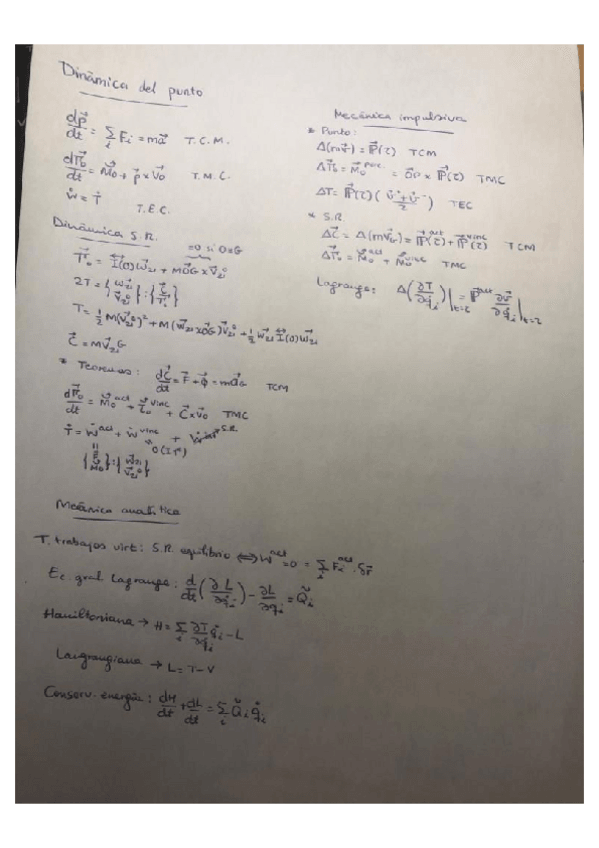 Dinámica del punto
dp⃗/dt = Σᵢ F⃗ᵢ = ma⃗   T.C.M.
dΓ⃗₀/dt = M⃗₀ + p⃗ × v⃗₀   T.M.C.
Ẇ = Ṫ   T.E.C.
Dinámica S.R.
=0 si O≡G
Γ⃗₀ = I(O) ω⃗₂₁ + M OG⃗ × V⃗₂₁⁰
2T = {ω⃗₂₁ / V⃗₂₁⁰} : {C⃗ / Γ⃗₀}
T = 1/2 M(V⃗₂₁⁰)² + M(ω⃗₂₁ × OG⃗) V⃗₂₁⁰ + 1/2 ω⃗₂₁ I(O) ω⃗₂₁
C⃗ = M V⃗₂₁G
* Teoremas: dC⃗/dt = F⃗ + Φ⃗ = m a⃗G   TCM
dΓ⃗₀/dt = M⃗₀ᵃᶜᵗ + τ⃗₀ᵛⁱⁿᶜ + C⃗ × v⃗₀   TMC
Ṫ = Ẇᵃᶜᵗ + Ẇᵛⁱⁿᶜ + Ẇⁱⁿᵗ S.R.
{F⃗ / M⃗₀} : {ω⃗₂₁ / V⃗₂₁⁰}
Mecánica impulsiva
* Punto:
Δ(mv⃗) = P⃗(τ)   TCM
Δ Γ⃗₀ = M⃗₀ᵖᵉʳᶜ = OP⃗ × P⃗(τ)   TMC
ΔT = P⃗(τ) ( (v⃗⁺ + v⃗⁻)/2 )   TEC
* S.R
ΔC⃗ = Δ(m v⃗G) = P⃗ᵃᶜᵗ(τ) + P⃗ᵛⁱⁿᶜ(τ)   TCM
ΔΓ⃗₀ = M⃗₀ᵃᶜᵗ + M⃗₀ᵛⁱⁿᶜ   TMC
Lagrange: Δ(∂T/∂q̇ᵢ)|t=τ = P⃗ᵃᶜᵗ ∂v⃗/∂q̇ᵢ|t=τ
Mecánica analítica
T. trabajos virt: S.R. equilibrio ⟺ Wᵃᶜᵗ = 0 = Σᵢ F⃗ᵢᵃᶜᵗ · δr⃗
Ec. gral Lagrange: d/dt (∂L/∂q̇ᵢ) - ∂L/∂qᵢ = Q̃ᵢ
Hamiltoniana → H = Σᵢ ∂T/∂q̇ᵢ q̇ᵢ - L
Laugrangiana → L = T - V
Conserv. energía: dH/dt + dL/dt = Σᵢ Q̃ᵢ q̇ᵢ